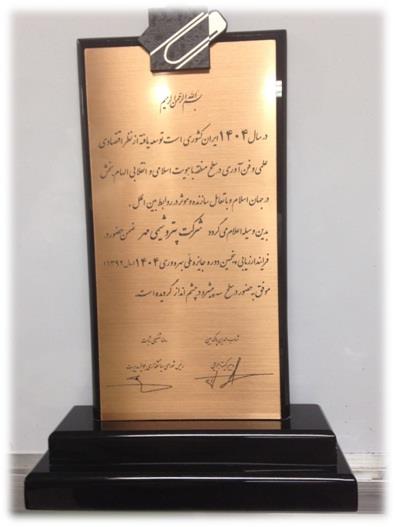 بسم الله الرحمن الرحیم
در سال ۱۴۰۴ ایران کشوری است توسعه یافته از نظر اقتصادی
علمی و فن آوری در سطح منطقه با هویت اسلامی و انقلابی الهام بخش
در جهان اسلام و با تعامل سازنده و موثر در روابط بین الملل.
بدین وسیله اعلام می گردد شرکت پتروشیمی مهر ضمن حضور در
فرایند ارزیابی پنجمین دوره جایزه ملی بهره وری ۱۴۰۴ (سال ۱۳۹۲)
موفق به حضور در سطح پیشرو در چشم انداز گردیده است.